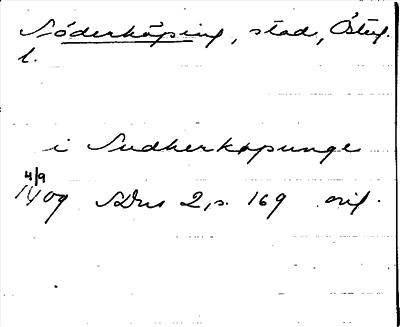 Söderköping, stad, Östg.
l.
i Sudherköpunge
4/9
1409 SDns 2, s. 169 orig.